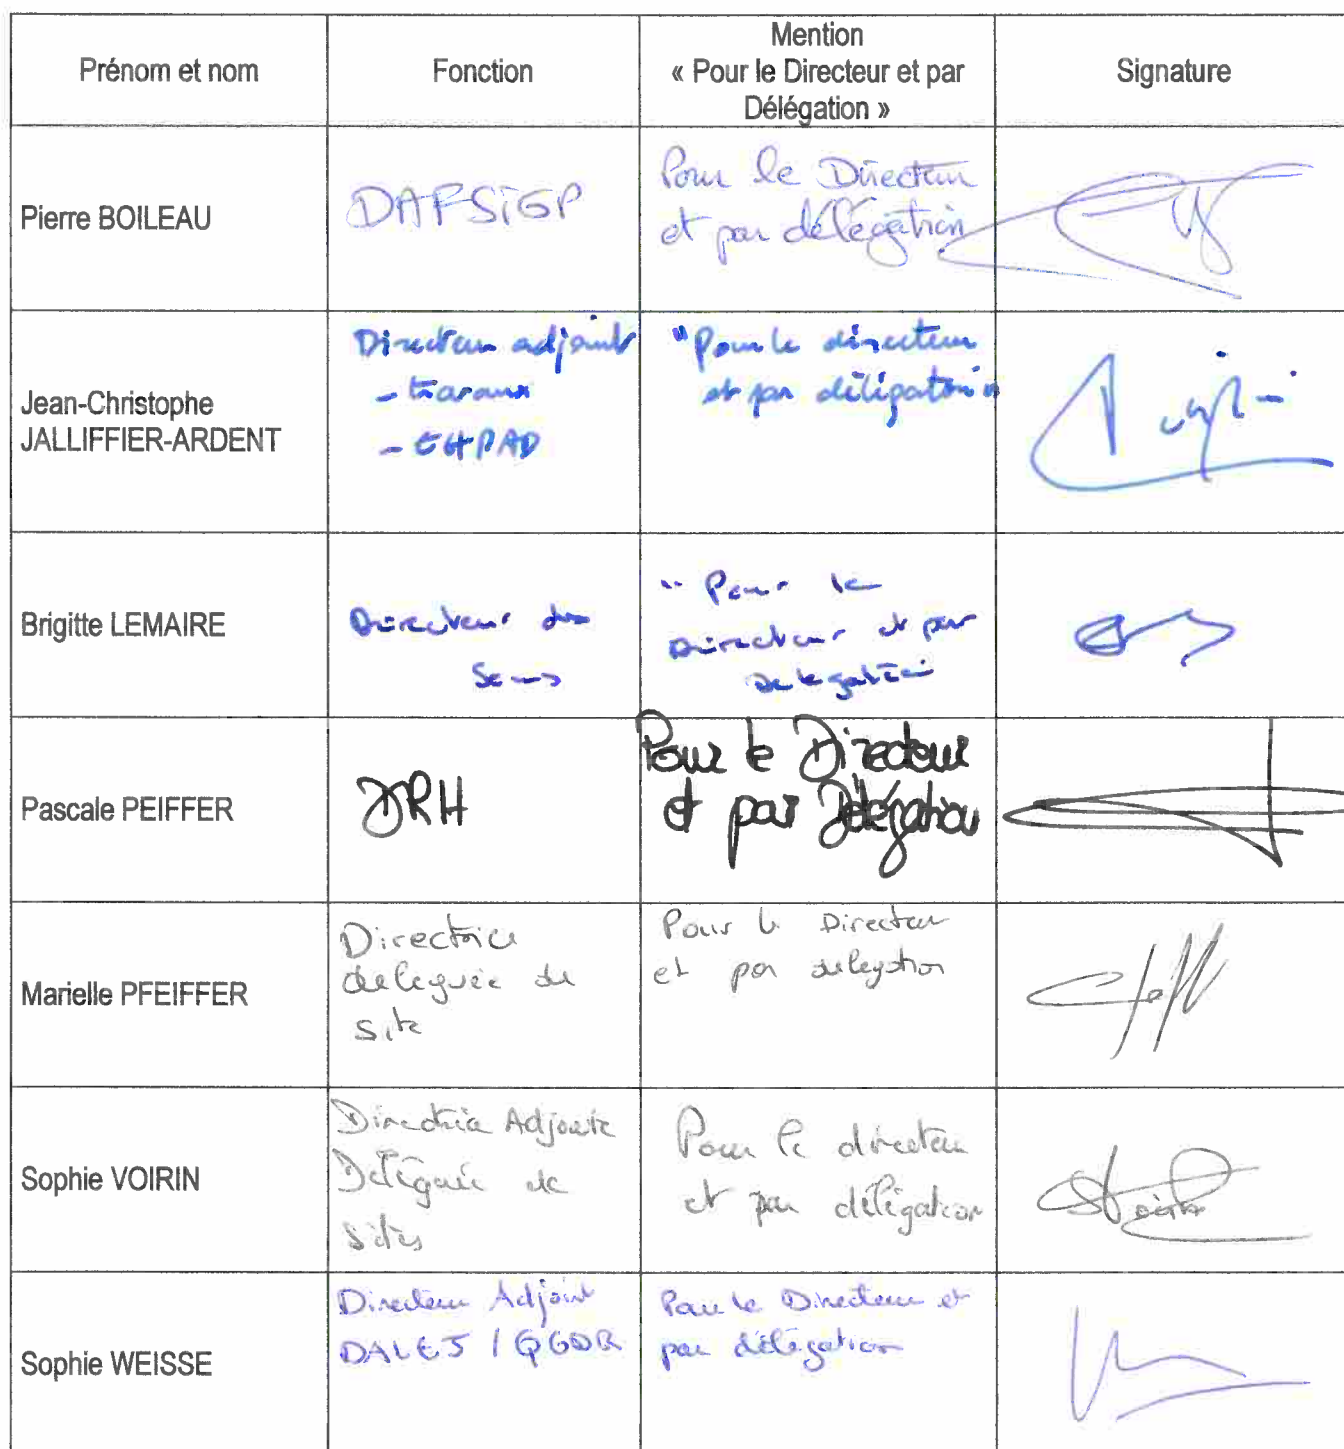 Prénom et nom
Fonction
Mention
« Pour le Directeur et par
Délégation »
Signature
Pierre BOILEAU
DAFSIGP
Pour le Directeur
et par délégation
Jean-Christophe
JALLIFFIER-ARDENT
Directeur adjoint
- travaux
- EHPAD
"Pour le directeur
et par délégation"
Brigitte LEMAIRE
Directeur des
Soins
" Pour le
Directeur et par
Delegation
Pascale PEIFFER
DRH
Pour le Directeur
et par Délégation
Marielle PFEIFFER
Directrice
déléguée de
site
Pour le Directeur
et par délégation
Sophie VOIRIN
Directrice Adjointe
Déléguée de
sites
Pour le directeur
et par délégation
Sophie WEISSE
Directeur Adjoint
DALEJ / QGDR
Pour le Directeur et
par délégation